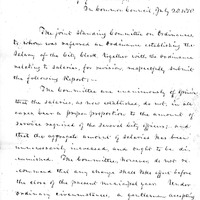 In Common Council, July 22 1850
The Joint Standing Committee on Ordinances
to whom was referred an Ordinance establishing the
Salary of the City Clerk, together with the Ordinance
relating to salaries, for revision, respectfully submit
the following Report:—
The Committee are unanimously of opinion,
that the salaries, as now established, do not, in all
cases bear a proper proportion to the amount of
service required of the several City officers, and
that the aggregate amount of salaries has been
unnecessarily increased, and ought to be di-
minished. The Committee, however, do not re-
commend that any change shall take effect before
the close of the present municipal year. Under
ordinary circumstances, a gentleman accepting